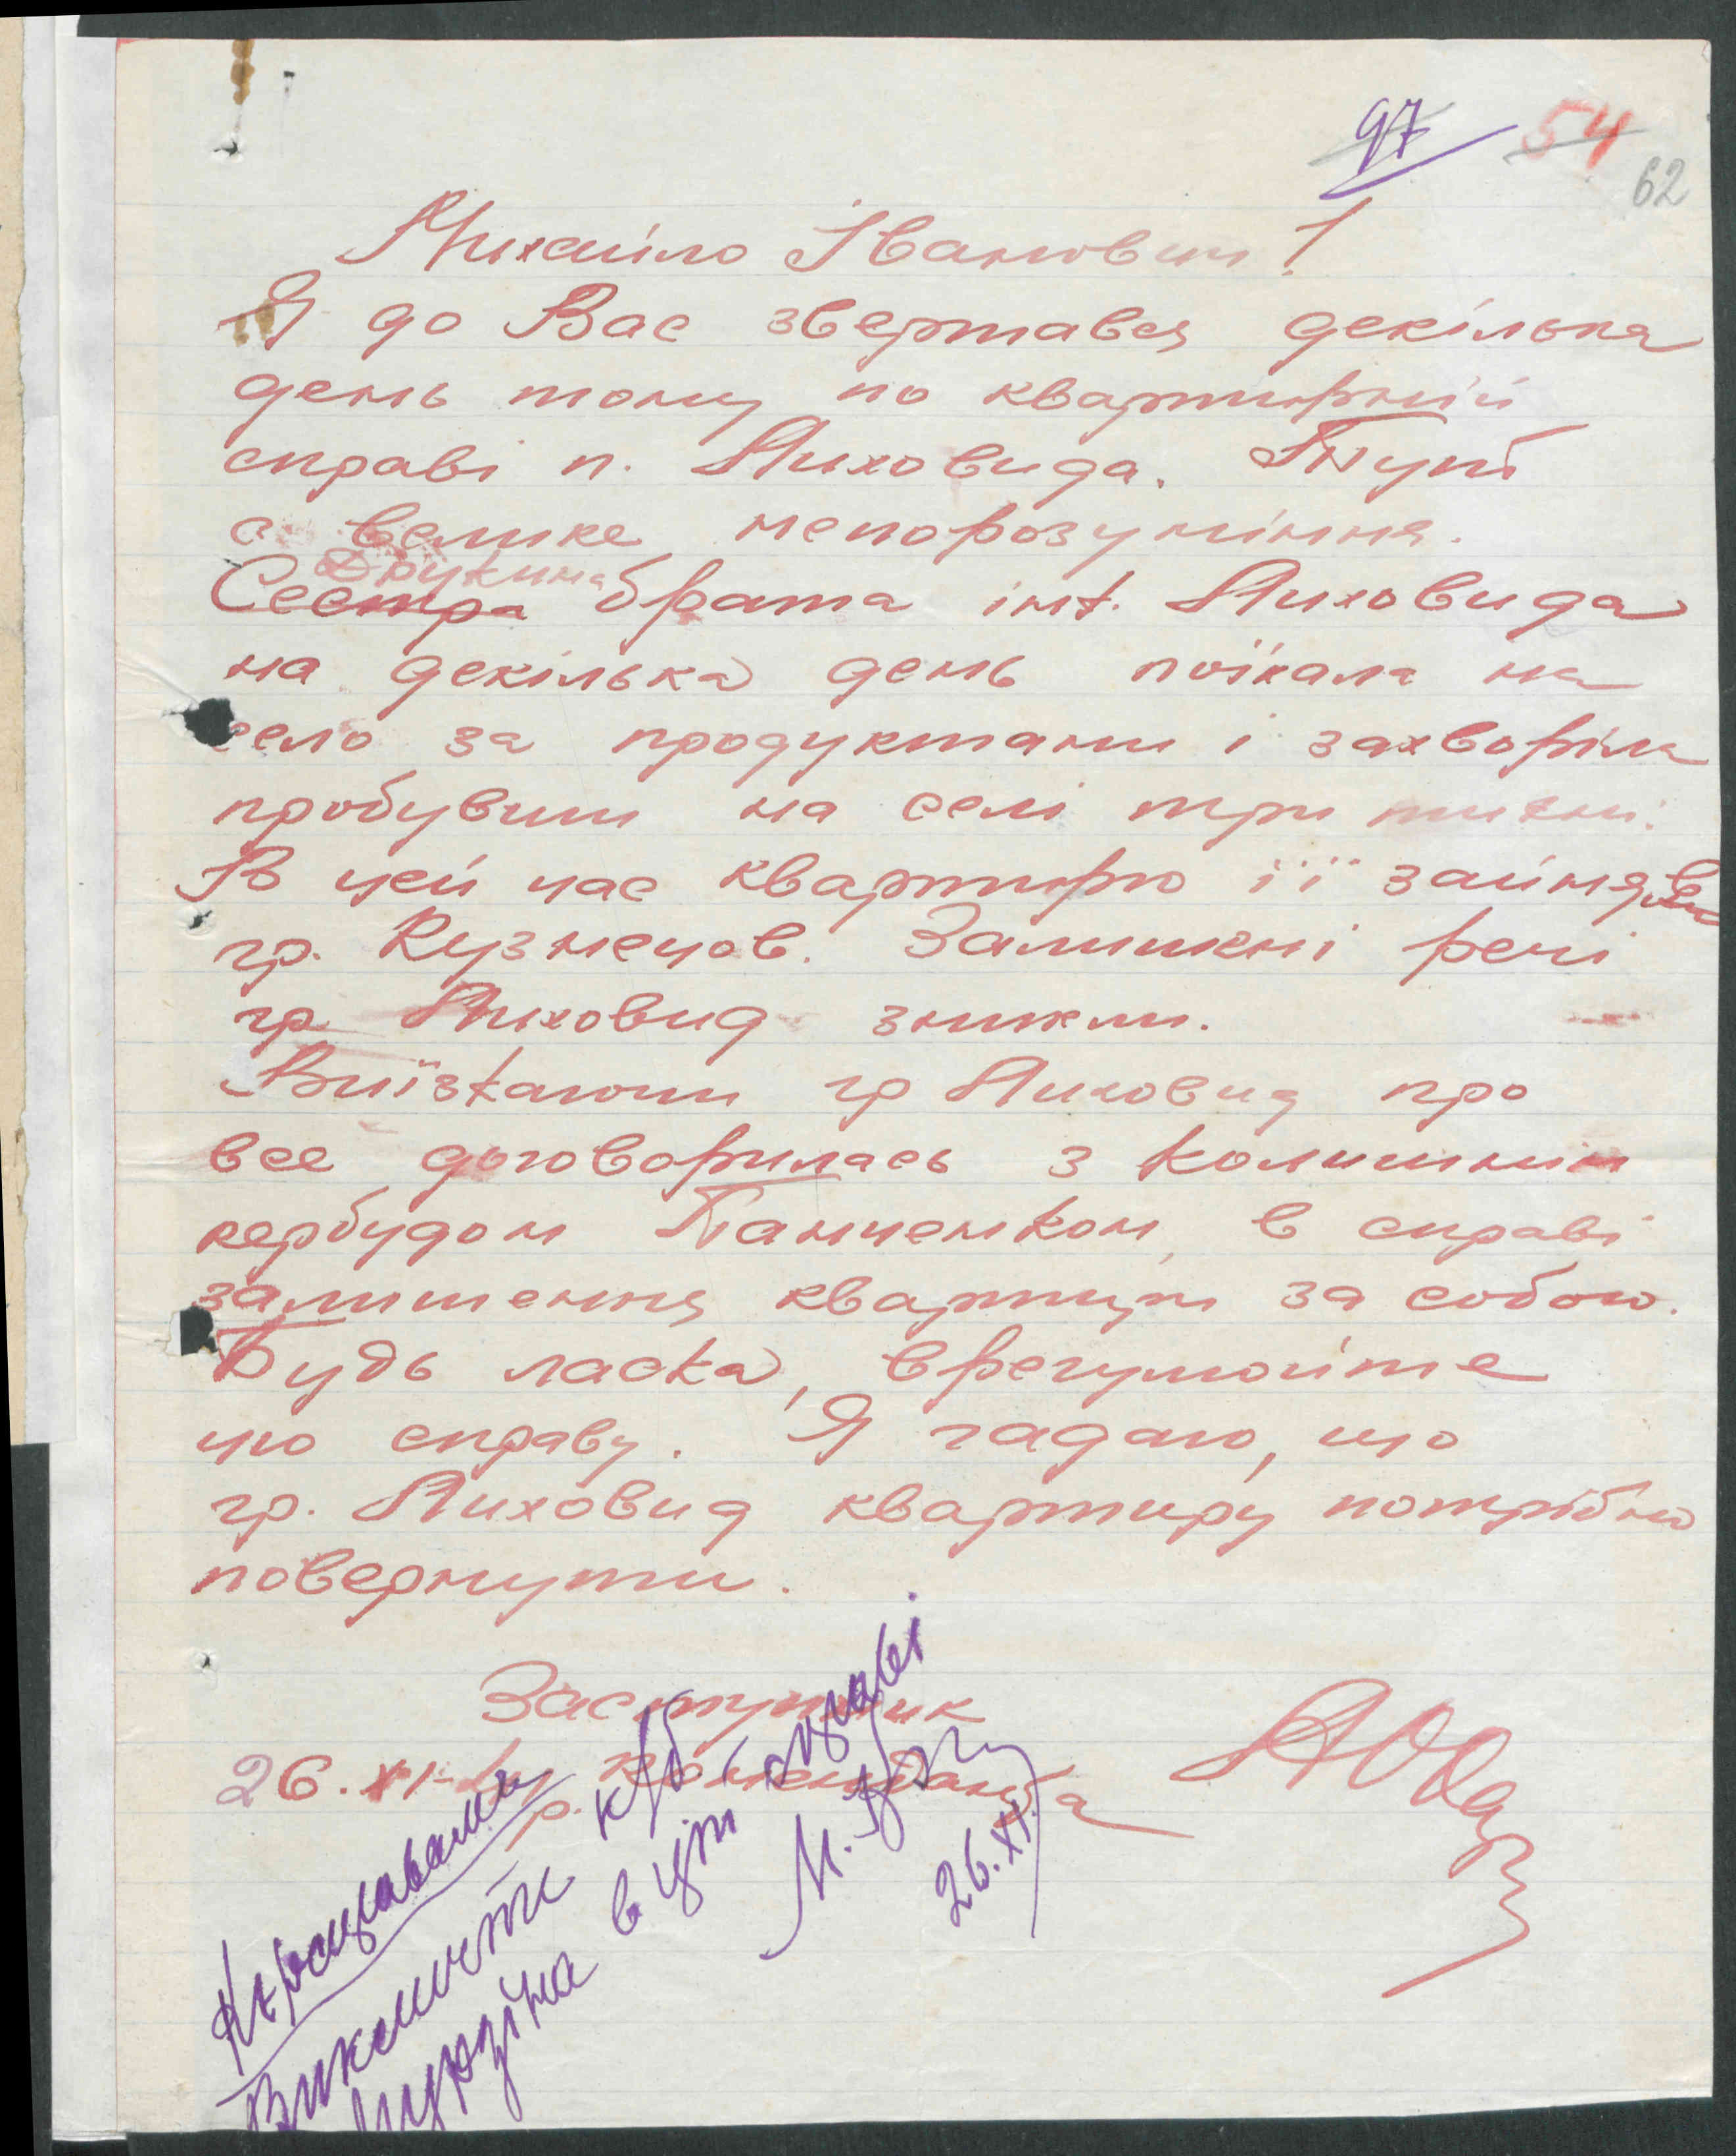 97 54
62
Михайло Іванович!
Я до Вас звертався декілька
день тому по квартирній
справі п. Лиховида. Тут
є велике непорозуміння.
Дружина
Сестра брата інж. Лиховида
на декілька день поїхала на
село за продуктами і захворіла
пробувши на селі три тижні.
В цей час квартирю її зайняв
гр. Кузнецов. Залишені речі
гр. Лиховид зникли.
Виїзжаючи гр Лиховид про
все договорилась з колишнім
кербудом Панченком, в справі
залишення квартири за собою.
Будь ласка, врегулюйте
цю справу. Я гадаю, що
гр. Лиховид квартиру потрібно
повернути.
Заступник
26.XI р. Коменданта
Викличте
в цій справі
26.XI